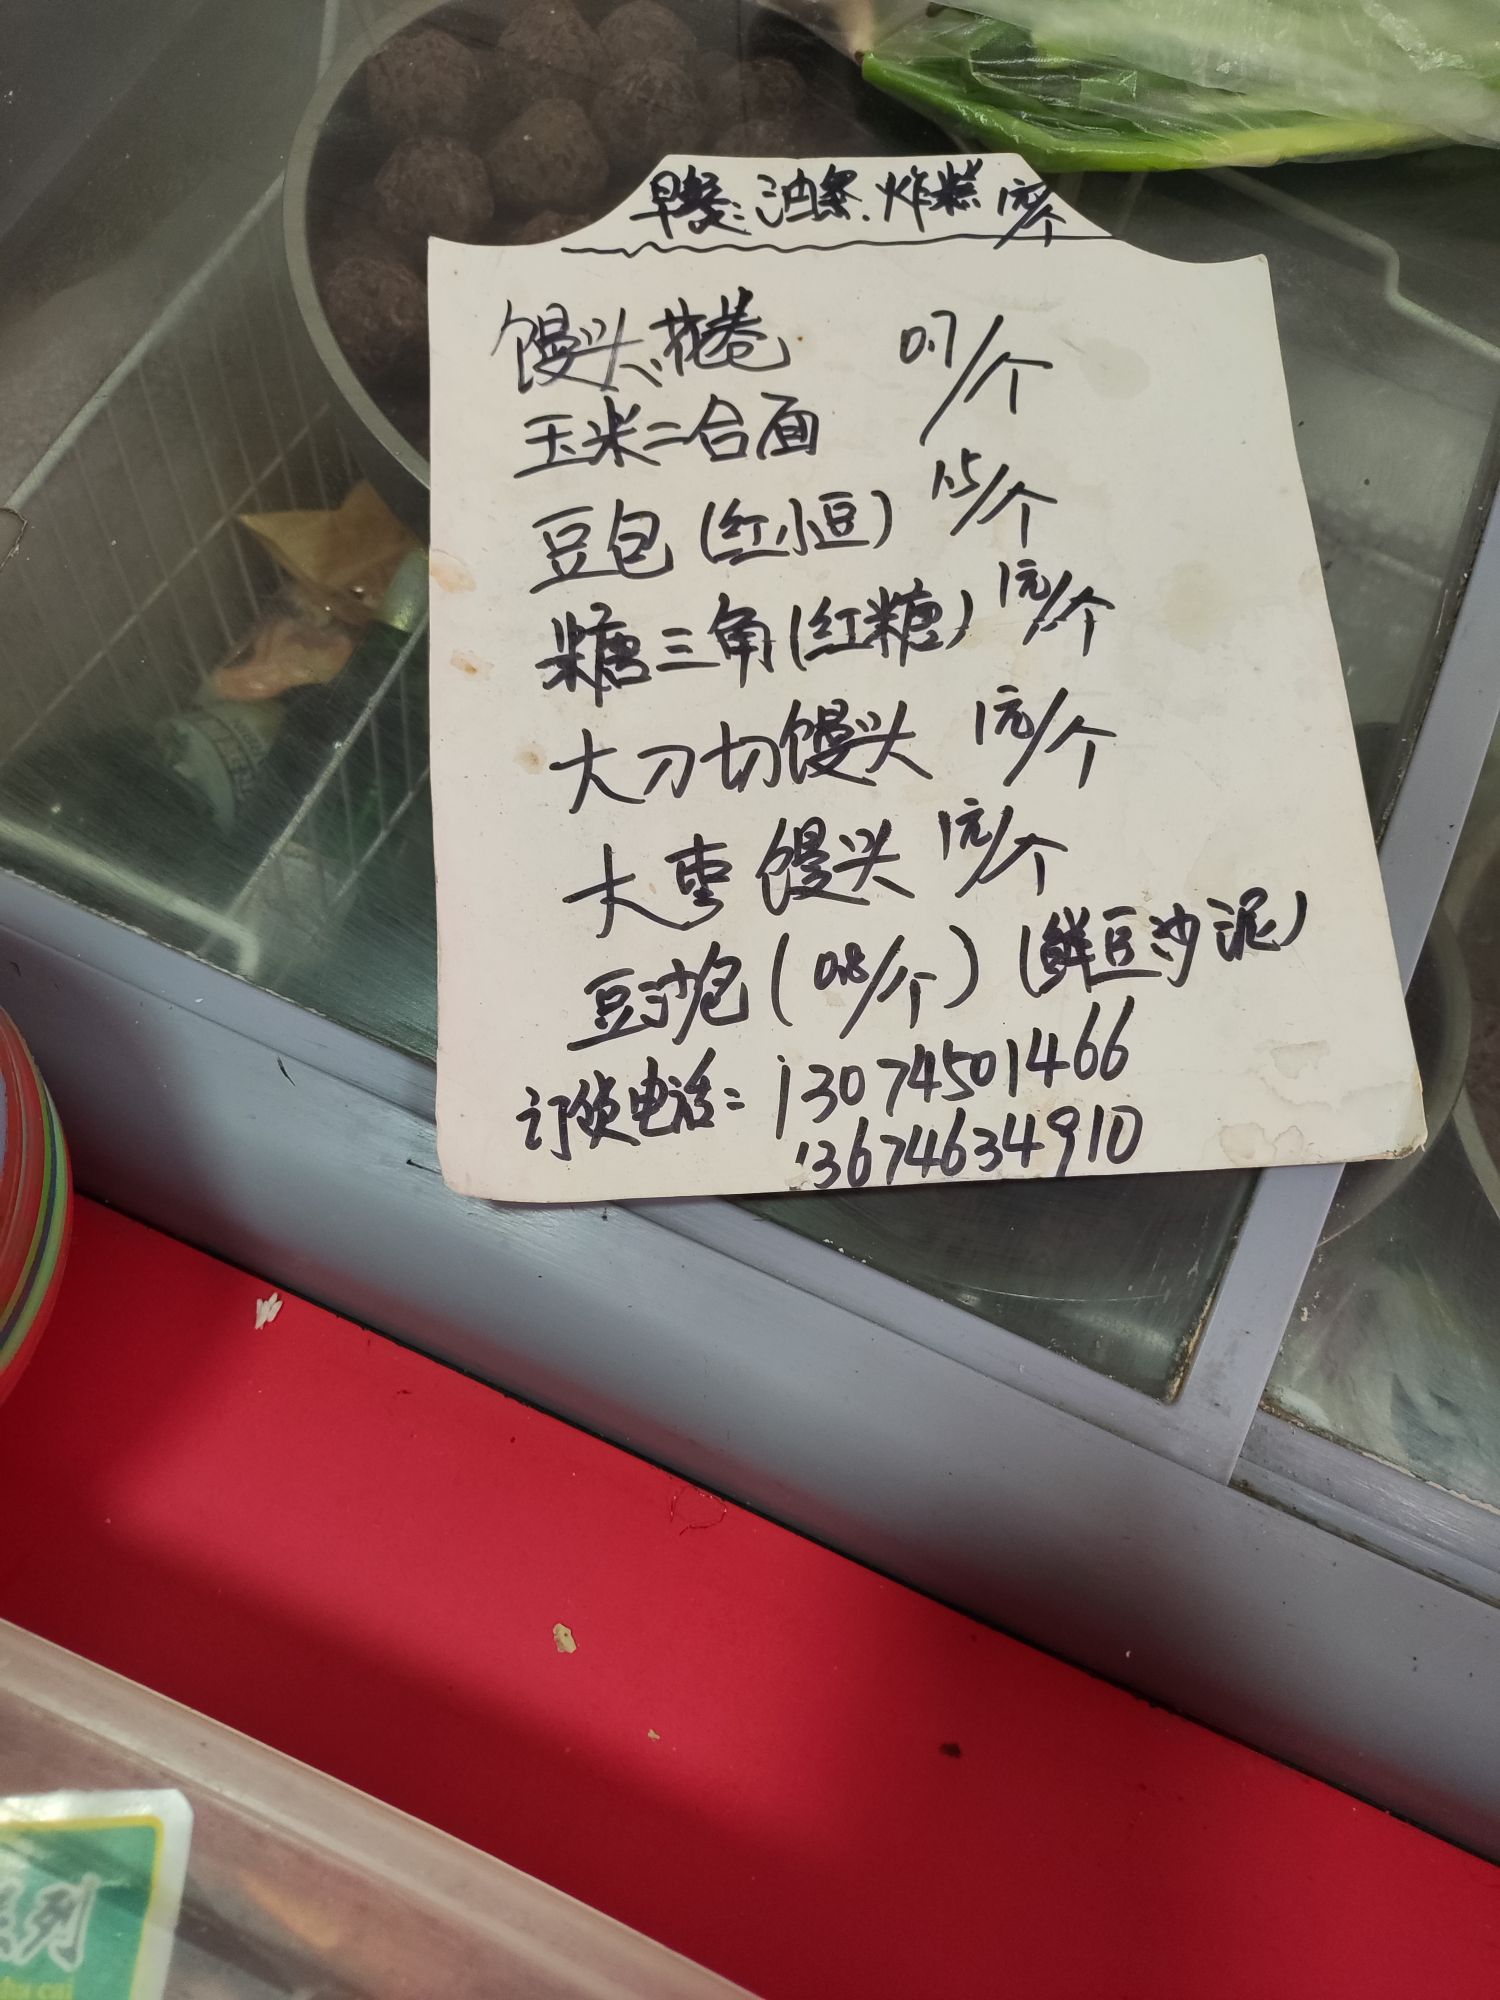 早餐:油条.炸糕 1元/个
馒头、花卷 0.7/个
玉米二合面
豆包(红小豆) 1.5/个
糖三角(红糖) 1元/个
大刀切馒头 1元/个
大枣馒头 1元/个
豆沙包(0.8/个)(鲜豆沙泥)
订货电话:13074501466
13674634910
列